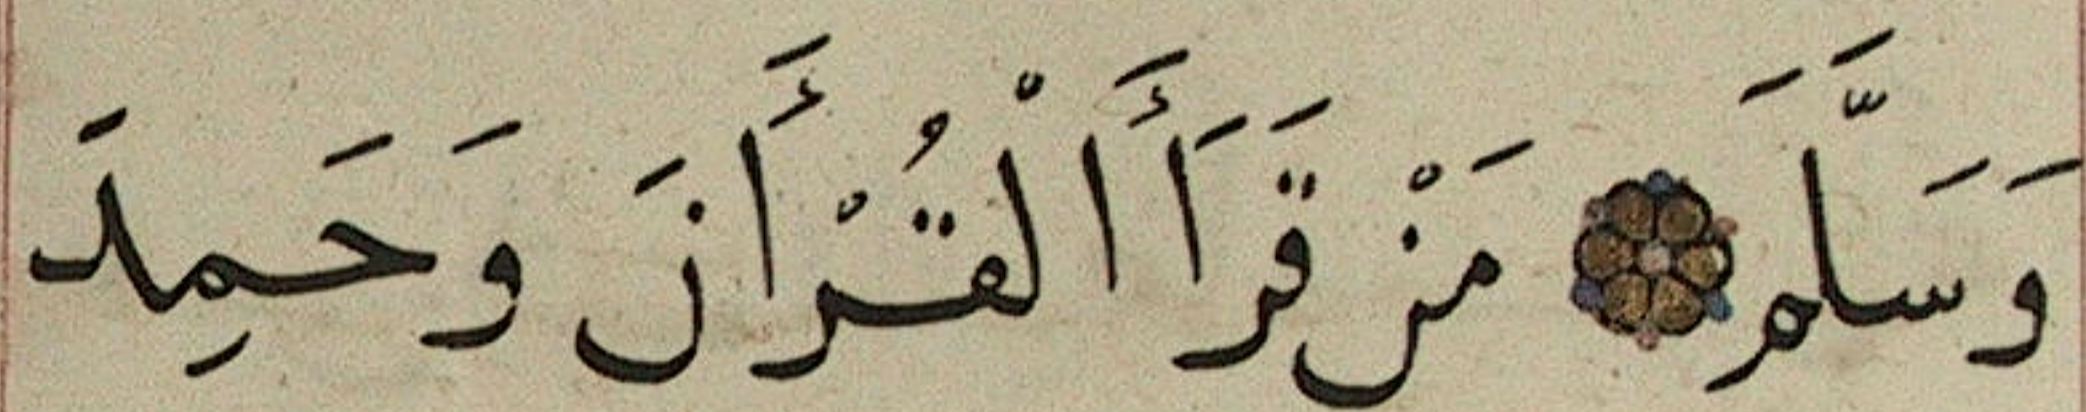 وَسَلَّمَ مَنْ قَرَأَ الْقُرْأَنَ وَحَمِدَ